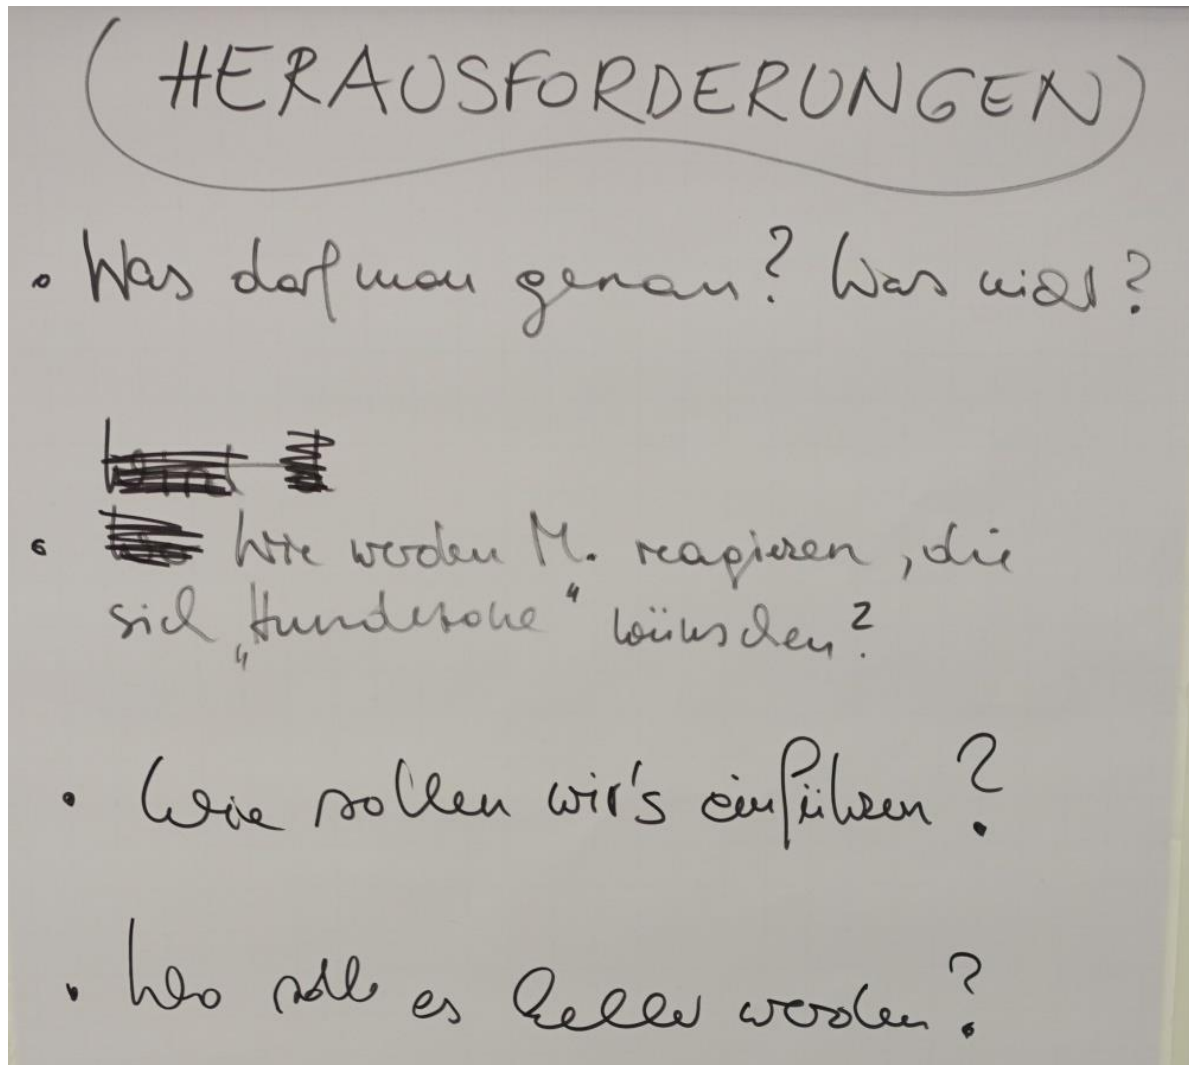 HERAUSFORDERUNGEN
• Was darf man genau? Was nicht?
• Wie werden M. reagieren, die
sich „Hundezone“ wünschen?
• Wie sollen wir's einführen?
• Wo soll es heller werden?